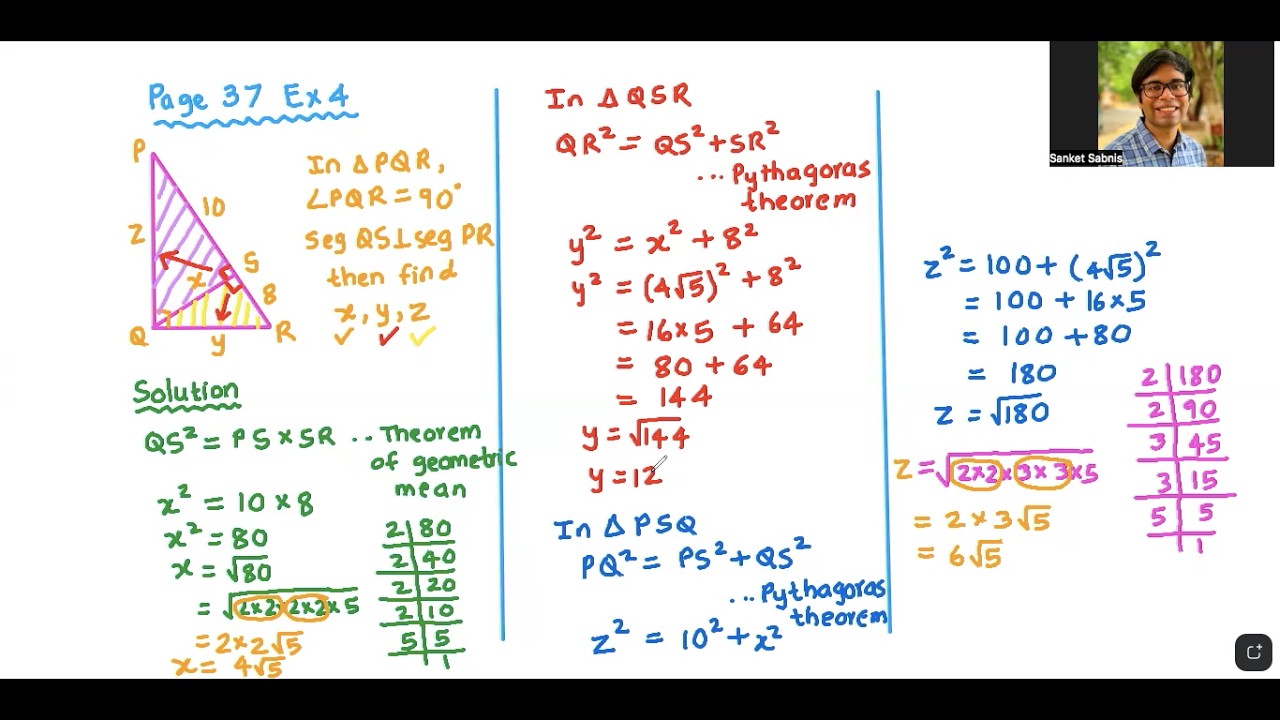 Page 37 Ex 4
P
10
Z
S
x
8
Q
y
R
In △PQR,
∠PQR = 90°
seg QS⊥seg PR
then find
x, y, z
✓ ✓ ✓
Solution
QS² = PS × SR .. Theorem
of geometric
mean
x² = 10 × 8
x² = 80
x = √80
= √2×2×2×2×5
= 2×2√5
x = 4√5
2|80
2|40
2|20
2|10
5|5
|1
In △QSR
QR² = QS² + SR²
... Pythagoras
theorem
y² = x² + 8²
y² = (4√5)² + 8²
= 16×5 + 64
= 80 + 64
= 144
y = √144
y = 12
In △PSQ
PQ² = PS² + QS²
... Pythagoras
theorem
z² = 10² + x²
Sanket Sabnis
z² = 100 + (4√5)²
= 100 + 16×5
= 100 + 80
= 180
z = √180
z = √2×2×3×3×5
= 2×3√5
= 6√5
2|180
2|90
3|45
3|15
5|5
|1